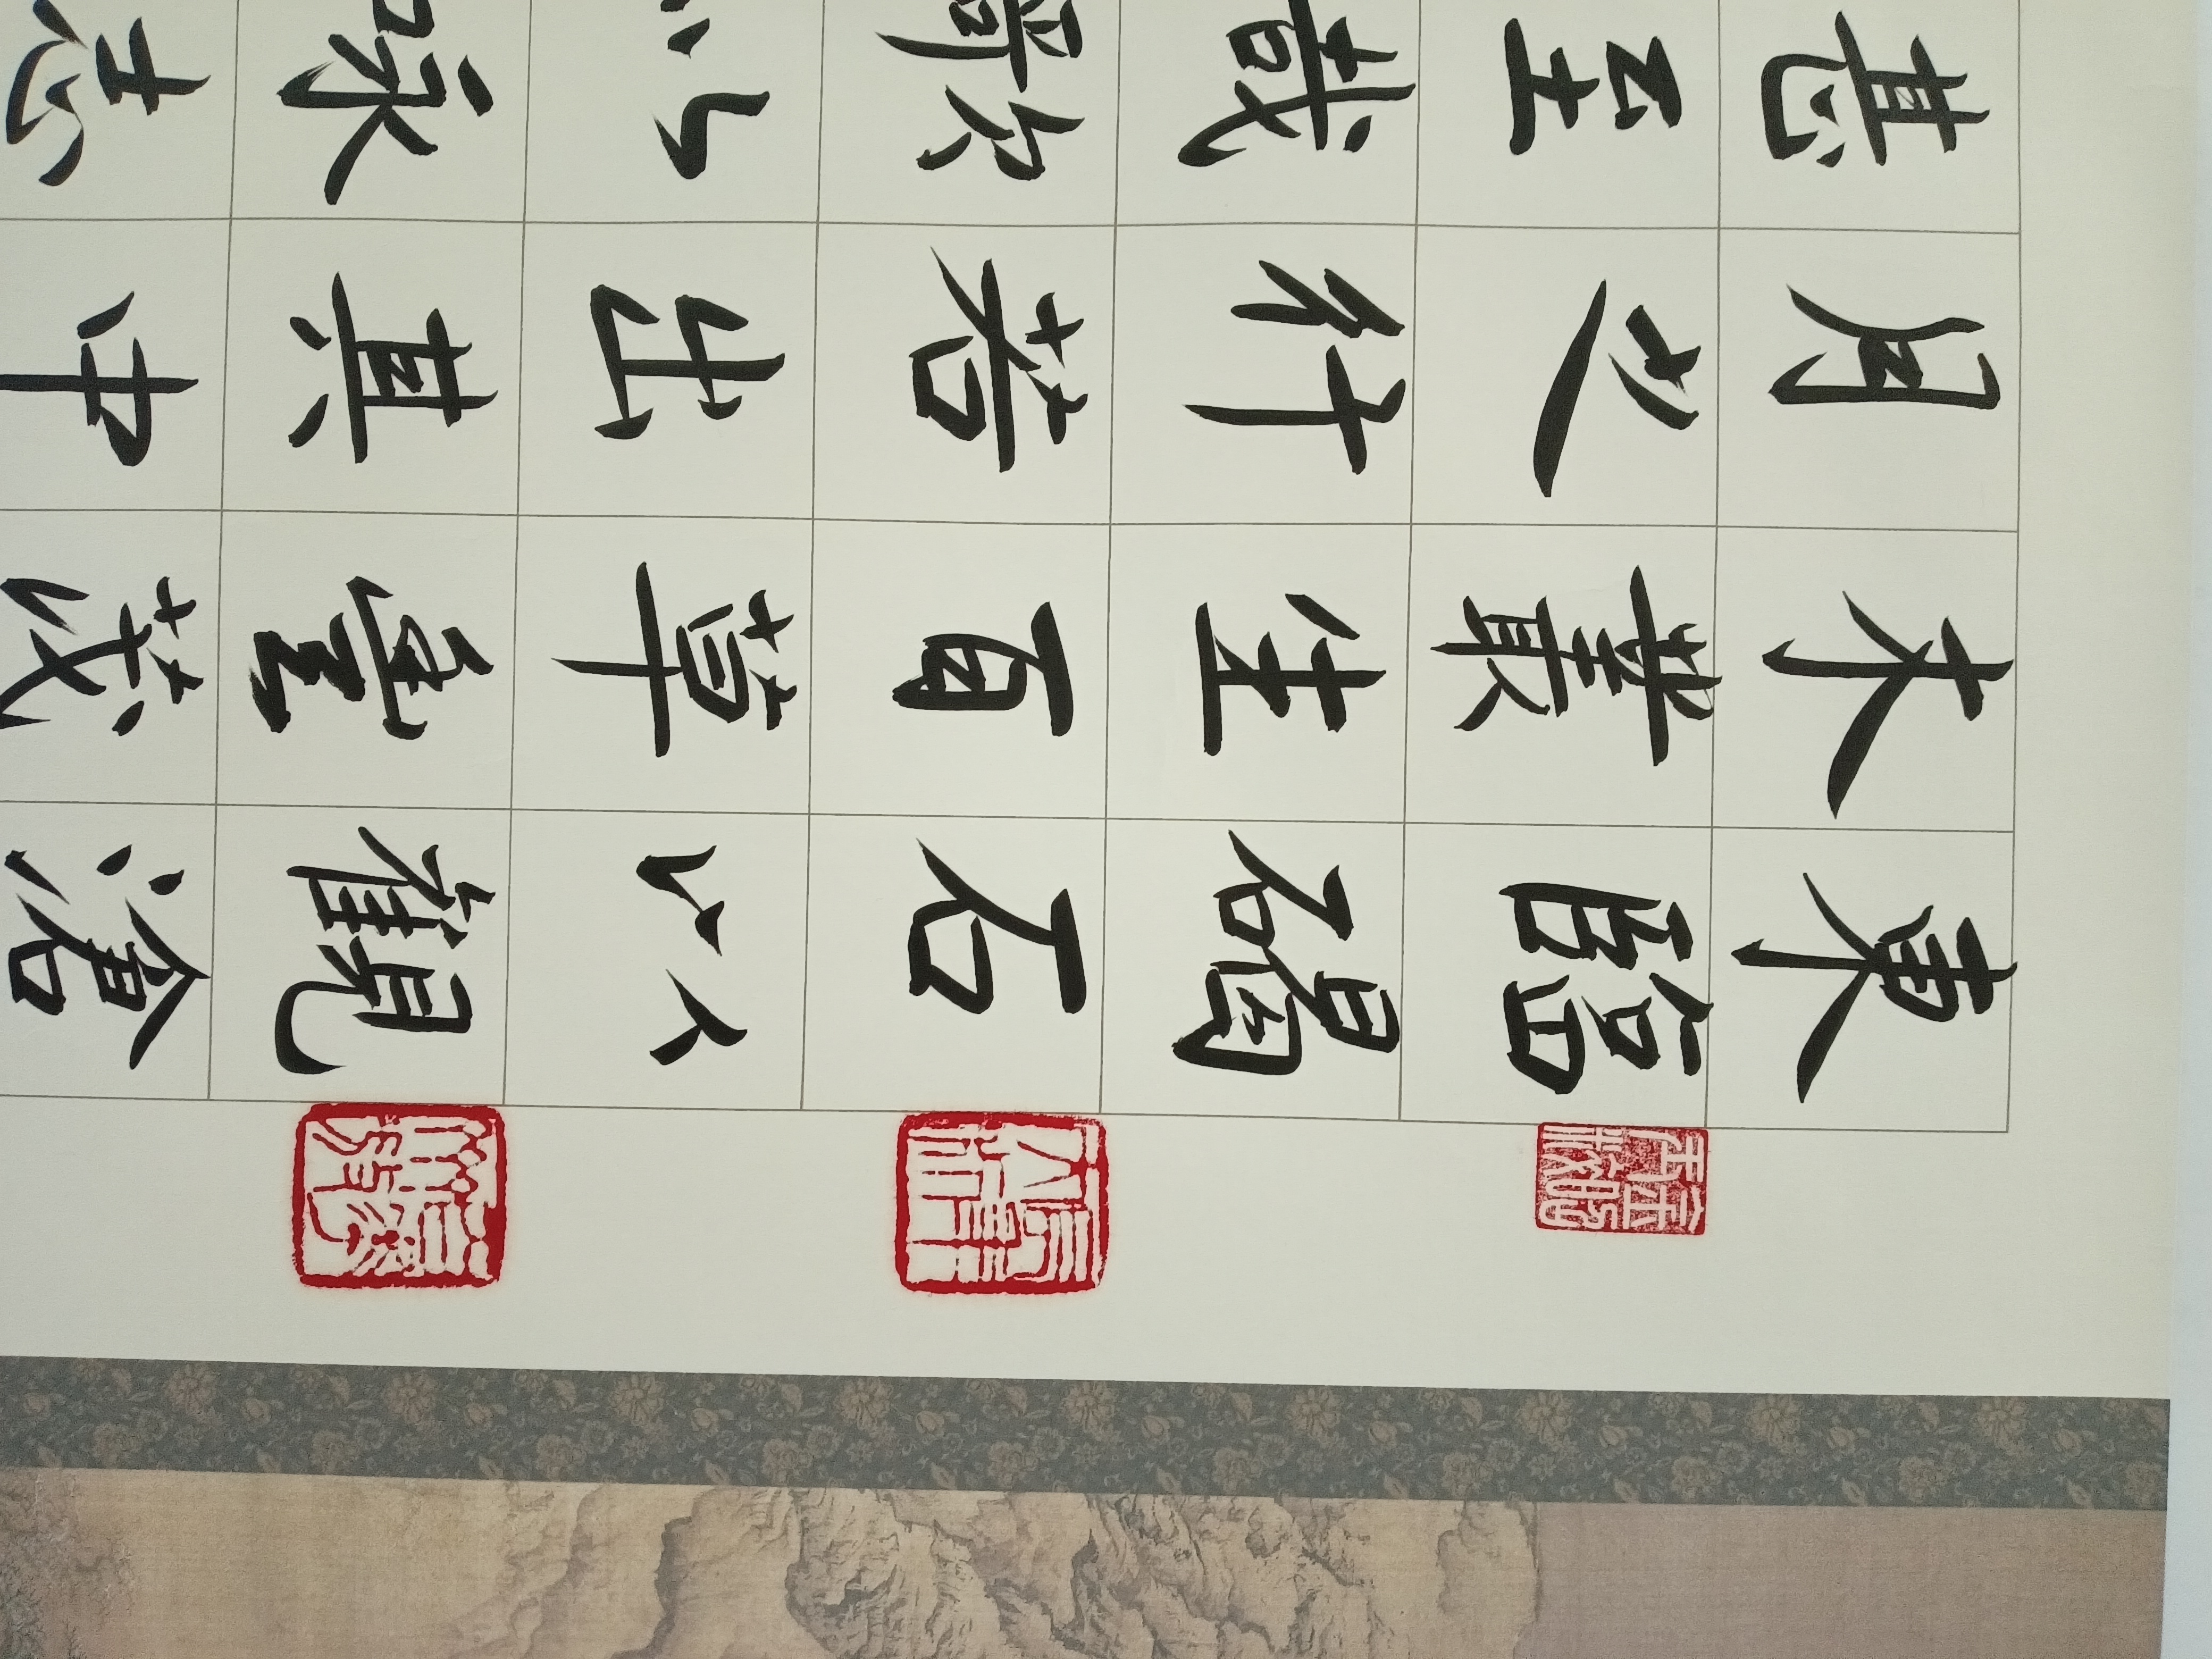 東臨碣石以觀滄
木叢生百草豐茂
月之行若出其中
甚至哉歌以詠志